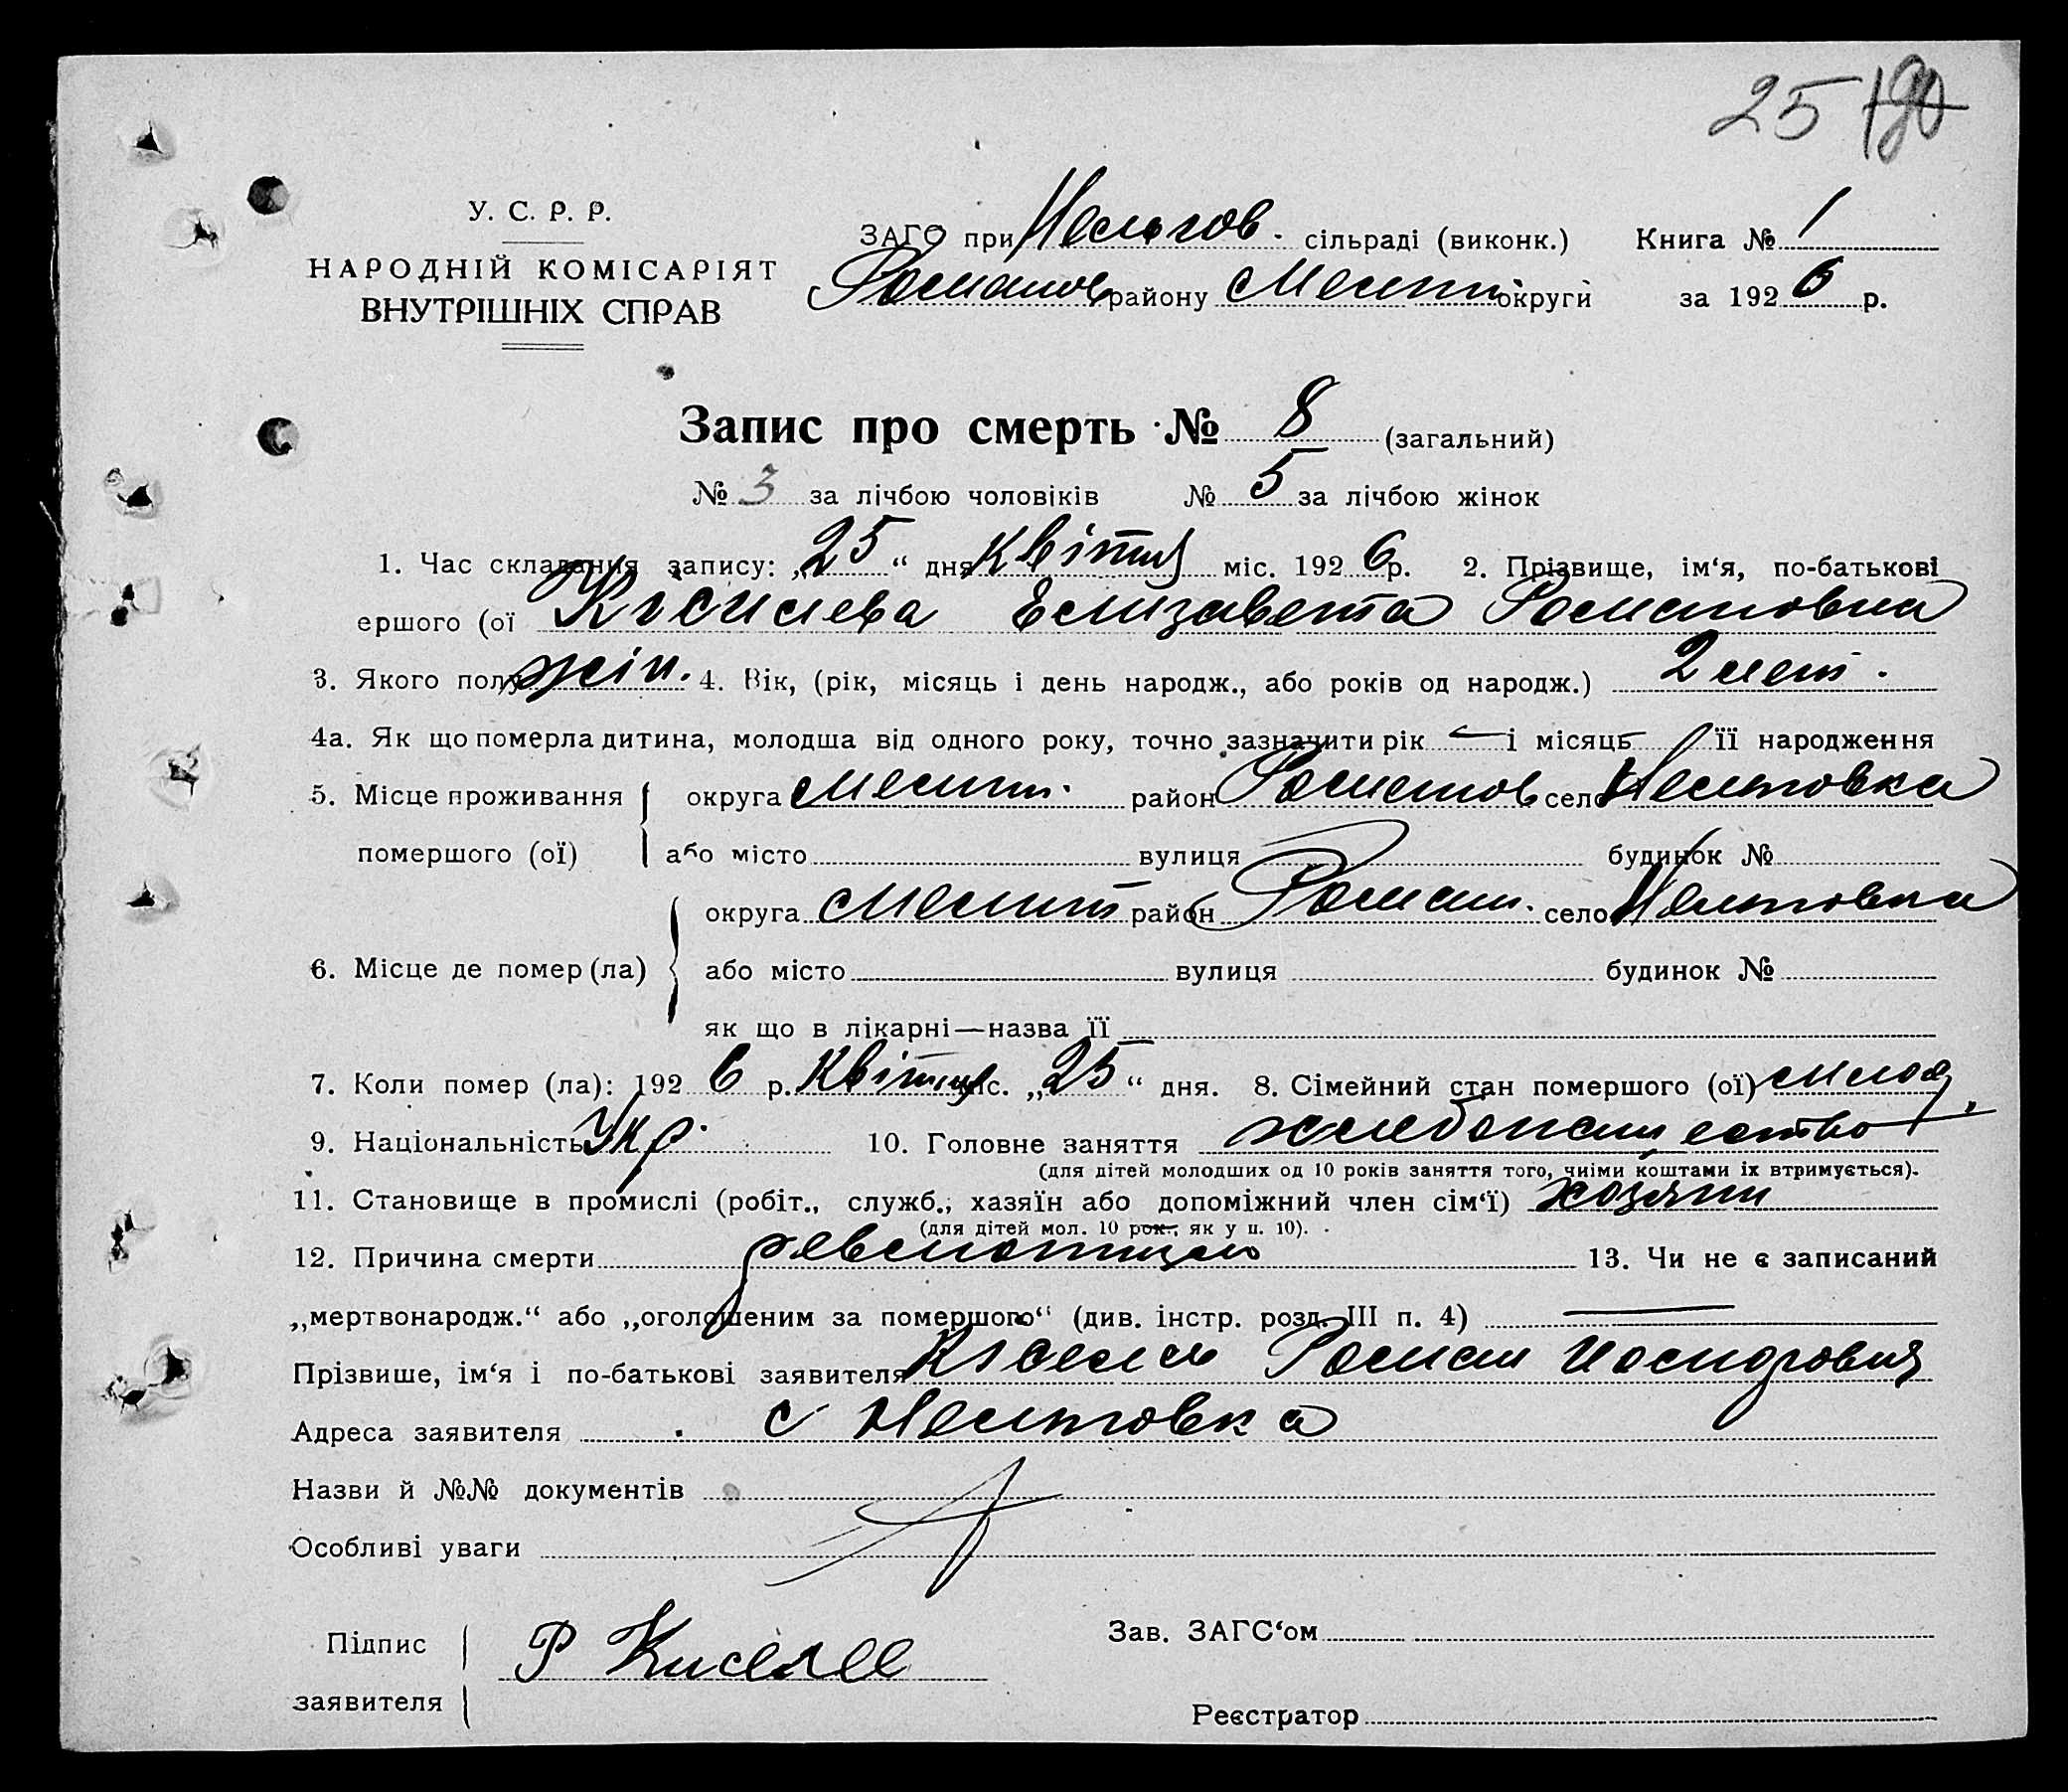 25
У. С. Р. Р.
НАРОДНІЙ КОМІСАРІЯТ
ВНУТРІШНІХ СПРАВ
ЗАГС при сільраді (виконк.) Книга № 1
Романов району Мелит округи за 1926 р.
Запис про смерть № 8 (загальний)
№ 3 за лічбою чоловіків № 5 за лічбою жінок
1. Час складання запису: „25“ дня Квітня міс. 1926 р. 2. Прізвище, ім‘я, по-батькові
ершого (ої Елизавета Романовна
3. Якого полу жін. 4. Вік, (рік, місяць і день народж., або років од народж.) 2 лет.
4а. Як що померла дитина, молодша від одного року, точно зазначити рік — і місяць її народження
5. Місце проживання округа Мелит. район Романов село
помершого (ої) або місто вулиця будинок №
округа Мелит район Роман. село
6. Місце де помер (ла) або місто вулиця будинок №
як що в лікарні—назва її
7. Коли помер (ла): 1926 р. Квітня міс. „25“ дня. 8. Сімейний стан помершого (ої)
9. Національність Укр. 10. Головне заняття
(для дітей молодших од 10 років заняття того, чиїми коштами їх втримується).
11. Становище в промислі (робіт., служб., хазяїн або допоміжний член сім‘ї) хозяин
(для дітей мол. 10 рок., як у п. 10).
12. Причина смерти 13. Чи не є записаний
„мертвонародж.“ або „оголошеним за помершого“ (див. інстр. розд. III п. 4) —
Прізвише, ім‘я і по-батькові заявителя Роман
Адреса заявителя с
Назви й №№ документів
Особливі уваги
Підпис Р Зав. ЗАГС‘ом
заявителя
Реєстратор